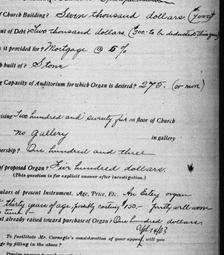 of Church Building? Seven thousand dollars (7000)
nt of Debt? Two thousand dollars (500- to be deducted this year)
is provided for? Mortgage @ 5%
h built of? Stone
Capacity of Auditorium for which Organ is desired? 275. (or more)
Two hundred and seventy five on floor of Church
no gallery in gallery
ership? One hundred and three
of proposed Organ? Five hundred dollars.
(This question is for explicit answer after investigation.)
ulars of present Instrument, Age, Price, Etc. An Estey organ
thirty years of age probably costing $150-
nt already raised toward purchase of Organ? One hundred dollars
To facilitate Mr. Carnegie's consideration of your appeal, will you
ge by filling in the above?